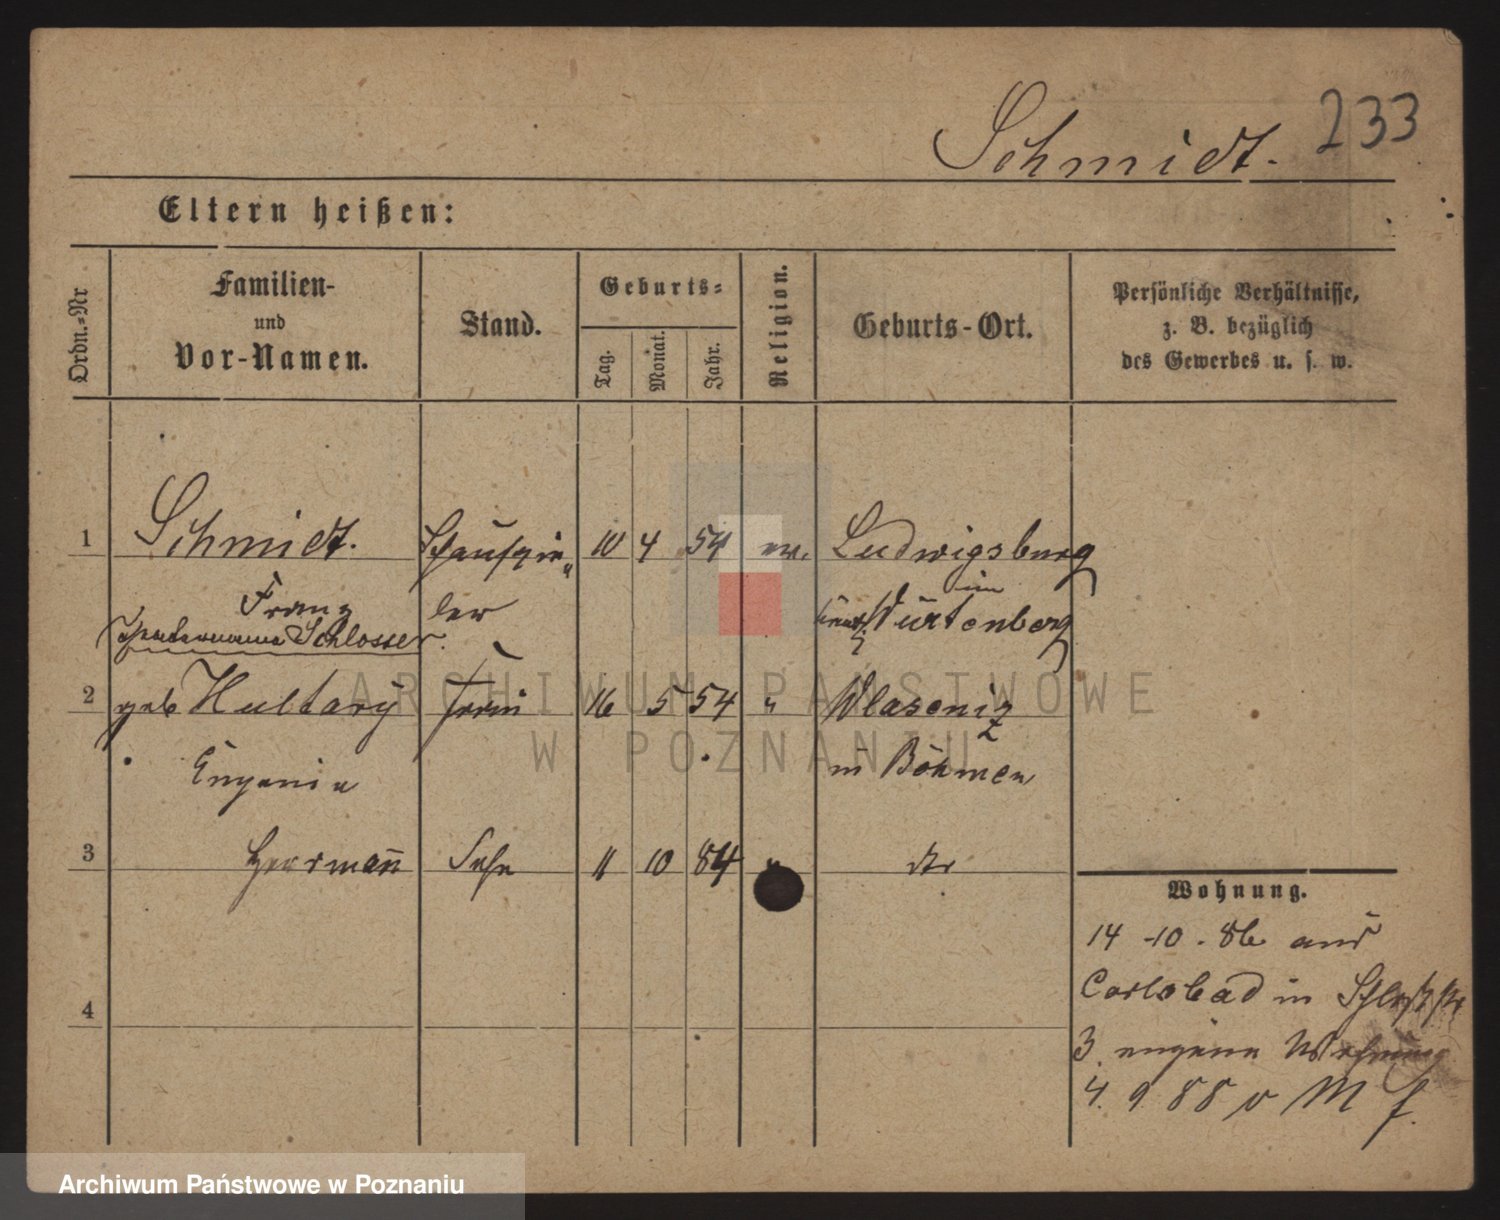 Schmidt.
233
Eltern heißen:
Ordn.-Nr
Familien-
und
Vor-Namen.
Stand.
Geburts-
Tag.
Monat.
Jahr.
Religion.
Geburts-Ort.
Persönliche Verhältnisse,
z. B. bezüglich
des Gewerbes u. s. w.
1 Schmidt. Schauspie„ 10 4 54 ev. Ludwigsburg
Franz ler im
Theatername Schlosser. Würtenberg
2 geb Hultary Frau 16 5 54 " Wlaseniz
Eugenie in Böhmen
3 Herrmann Sohn 11 10 84 " do
4
Wohnung.
14-10.86 aus
Carlsbad in Schloßstr
3. eigene Wohnung
4. 9 88 v M f.
ARCHIWUM PAŃSTWOWE
W POZNANIU
Archiwum Państwowe w Poznaniu